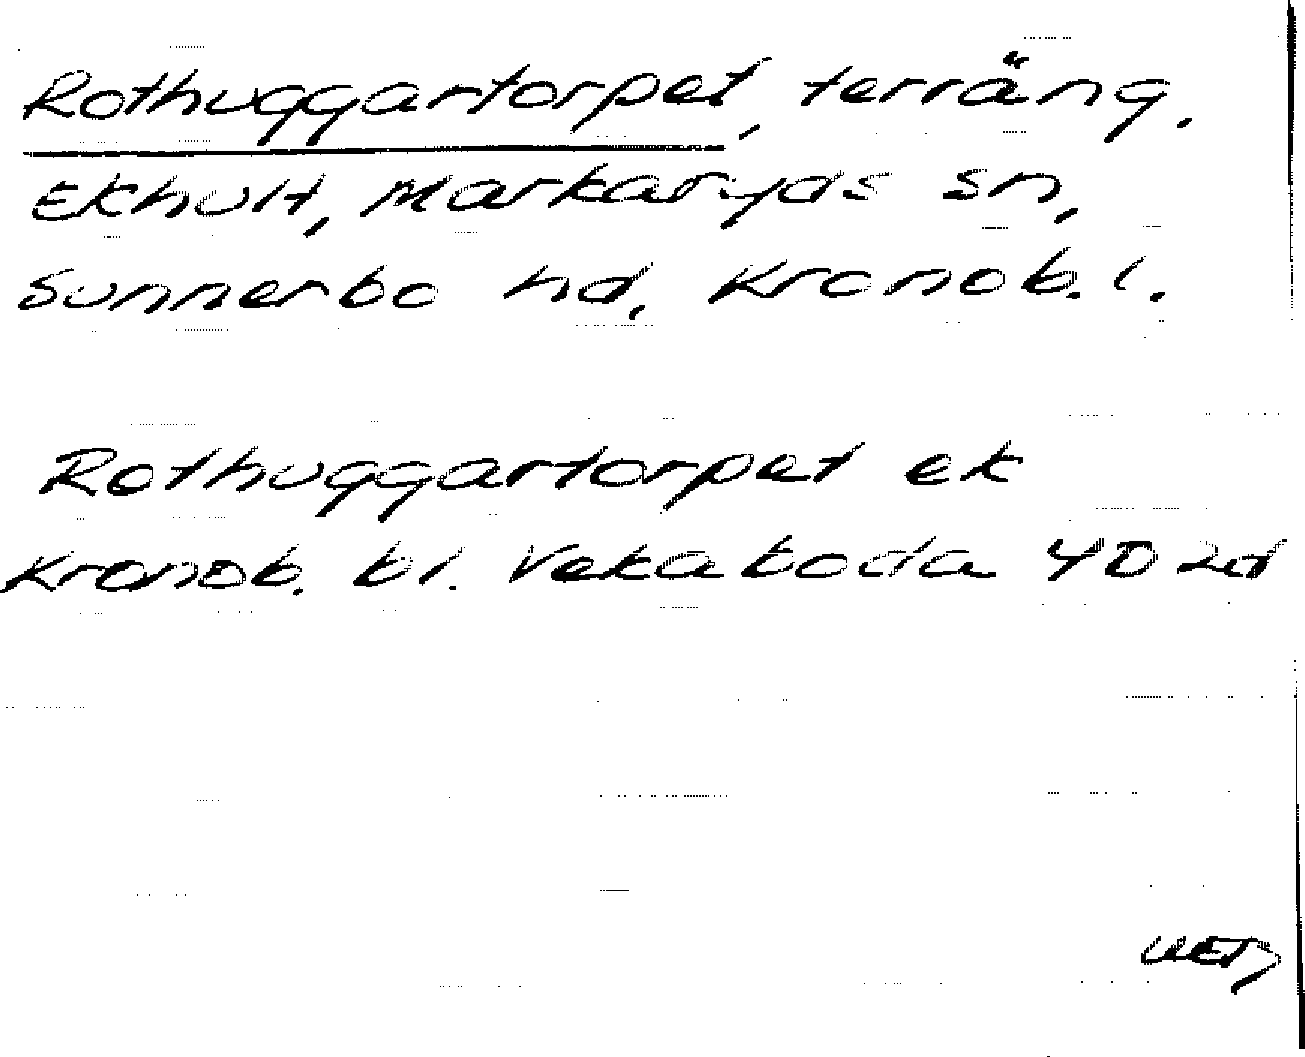 Rothuggartorpet, terräng.
Ekhult, Markaryds sn,
Sunnerbo hd, Kronob. l.
Rothuggartorpet ek
Kronob. bl. Vekaboda 4D 2d